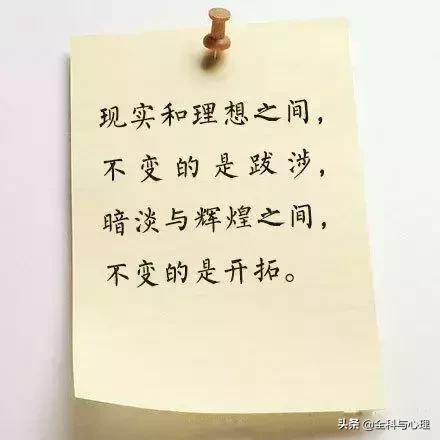 现实和理想之间，
不变的是跋涉，
暗淡与辉煌之间，
不变的是开拓。
头条 @全科与心理